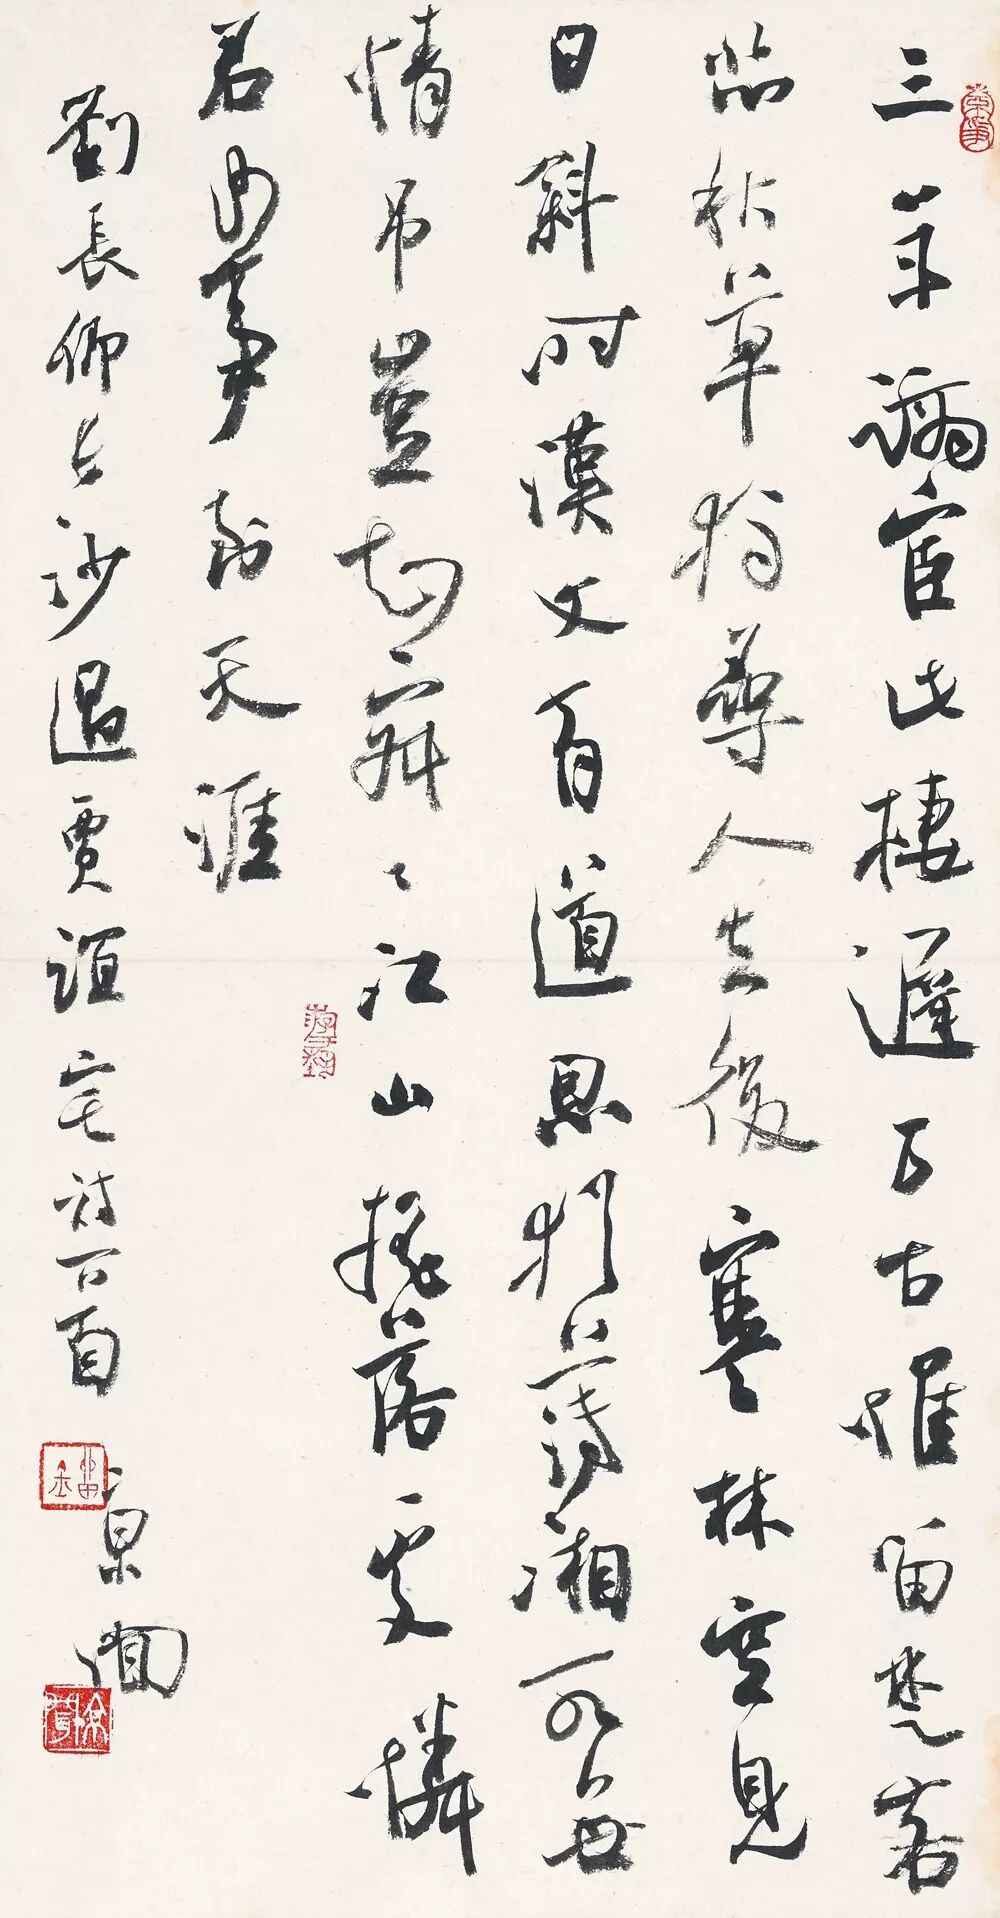 三年謫宦此棲遲万古惟留楚客
悲秋草獨尋人去後寒林空見
日斜时漢文有道恩猶薄湘水無
情吊豈知寂々江山搖落處憐
君何事到天涯
劉長卿長沙過賈誼宅詩一首